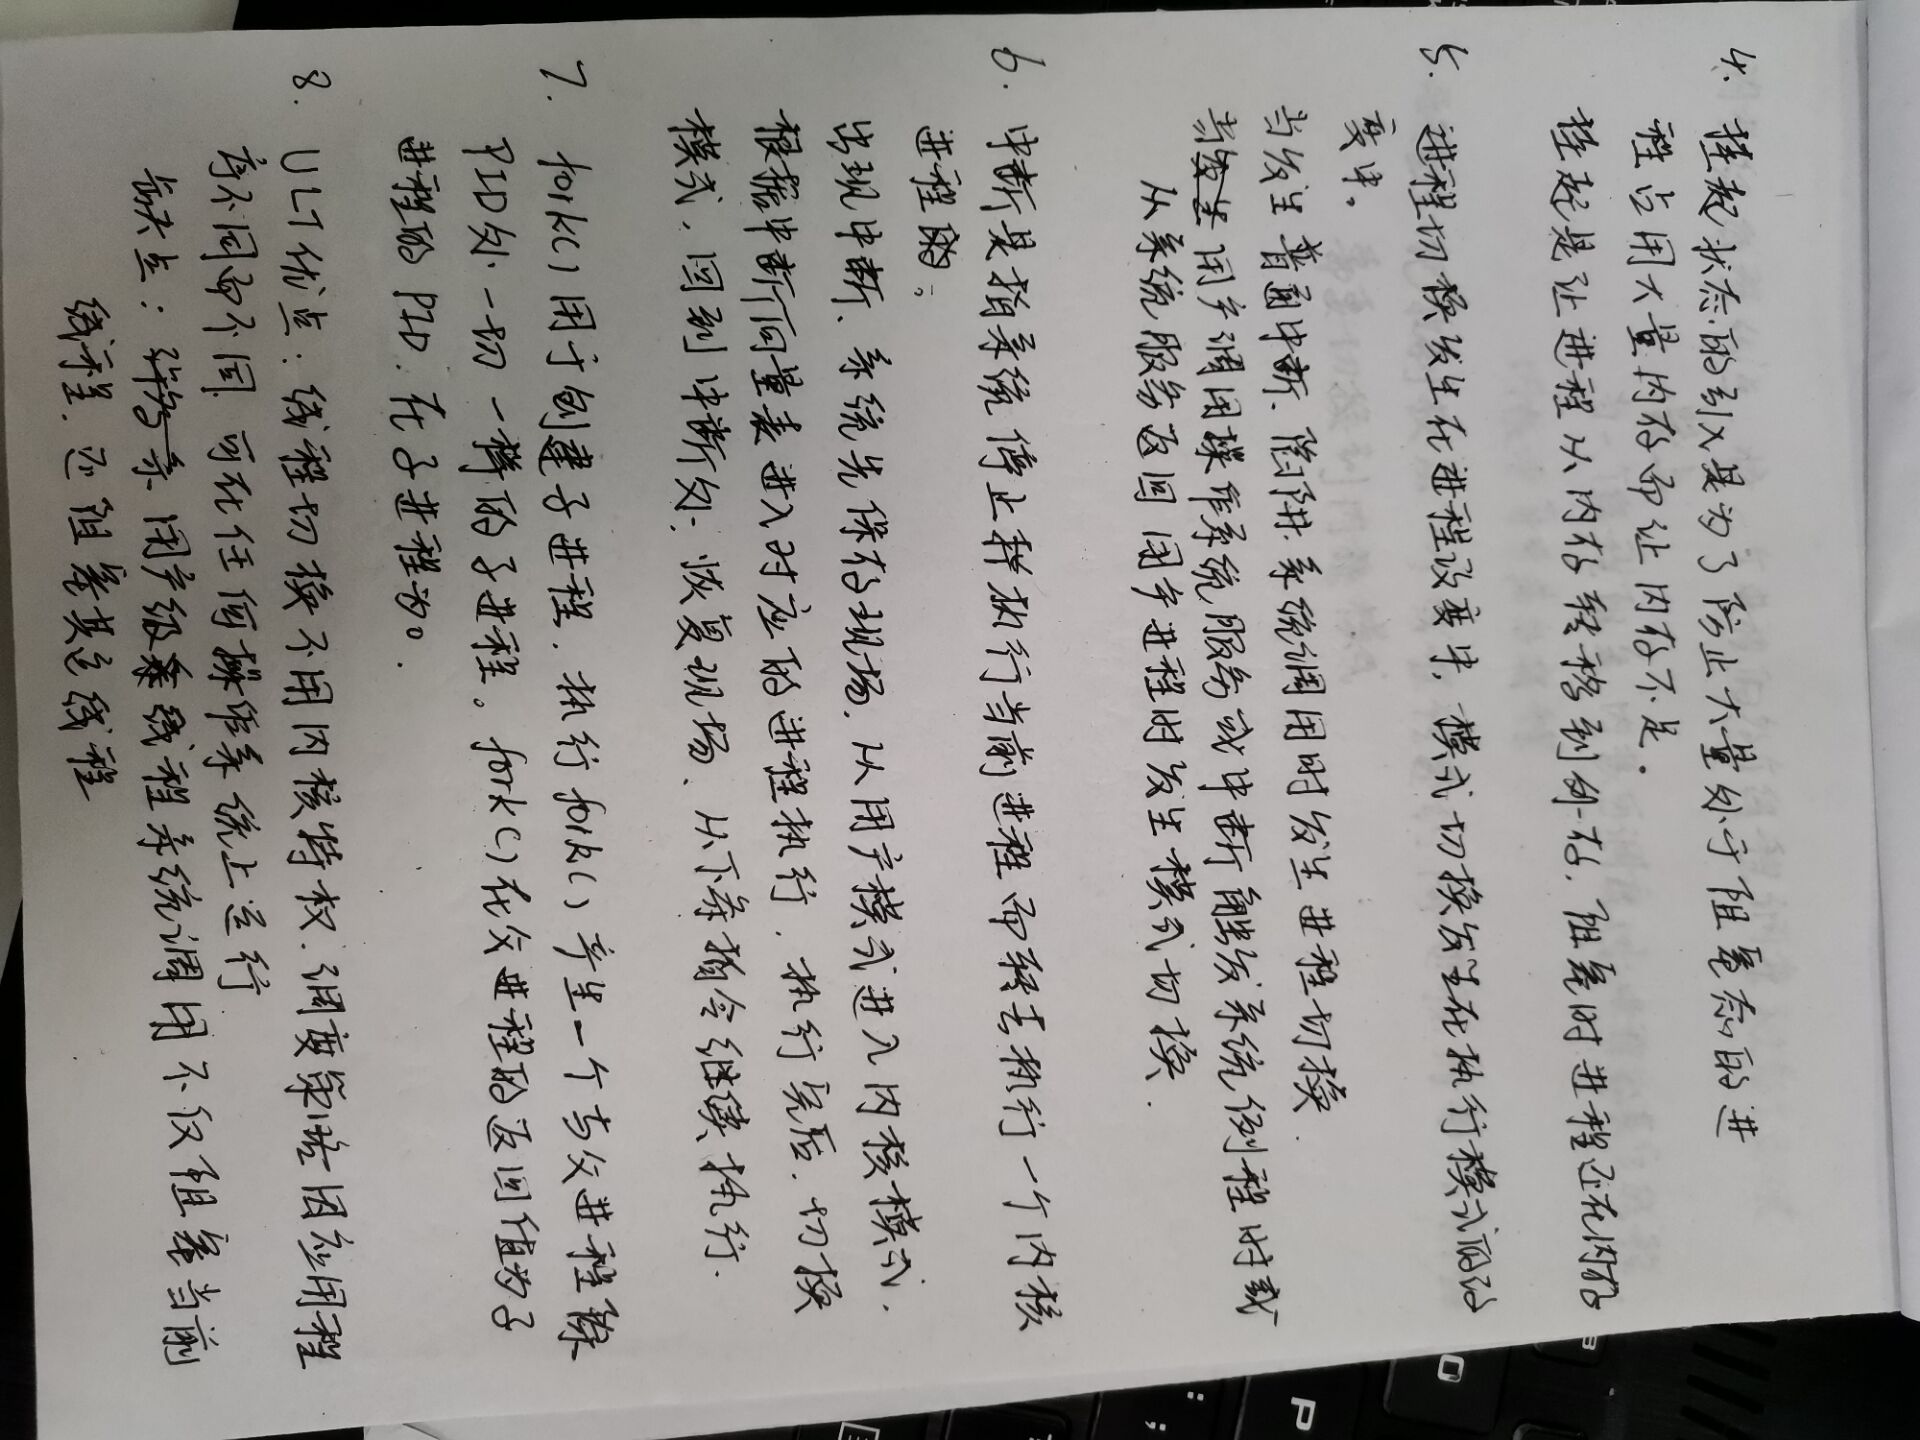 4. 挂起状态的引入是为了防止大量处于阻塞态的进
程占用大量内存而让内存不足。
挂起是让进程从内存转移到外存，阻塞时进程还在内存
5. 进程切换发生在进程改变中，模式切换发生在执行模式的改
变中。
当发生普通中断、陷阱、系统调用时发生进程切换.
当用户调用操作系统服务或中断触发系统例程时或
从系统服务返回用户进程时发生模式切换.
6. 中断是指系统停止执行当前进程而转去执行一个内核
进程。
出现中断、系统先保存现场，从用户模式进入内核模式.
根据中断向量表进入对应的进程执行，执行完后，切换
模式，回到中断处，恢复现场、从下条指令继续执行.
7. fork()用于创建子进程，执行fork()产生一个与父进程除
PID外一切一样的子进程。fork()在父进程的返回值为子
进程的PID，在子进程为0.
8. ULT优点：线程切换不用内核特权，调度策略因应用程
序不同而不同，可在任何操作系统上运行
缺点：用户级线程系统调用不仅阻塞当前
线程，还阻塞其它线程
O
P
:
;